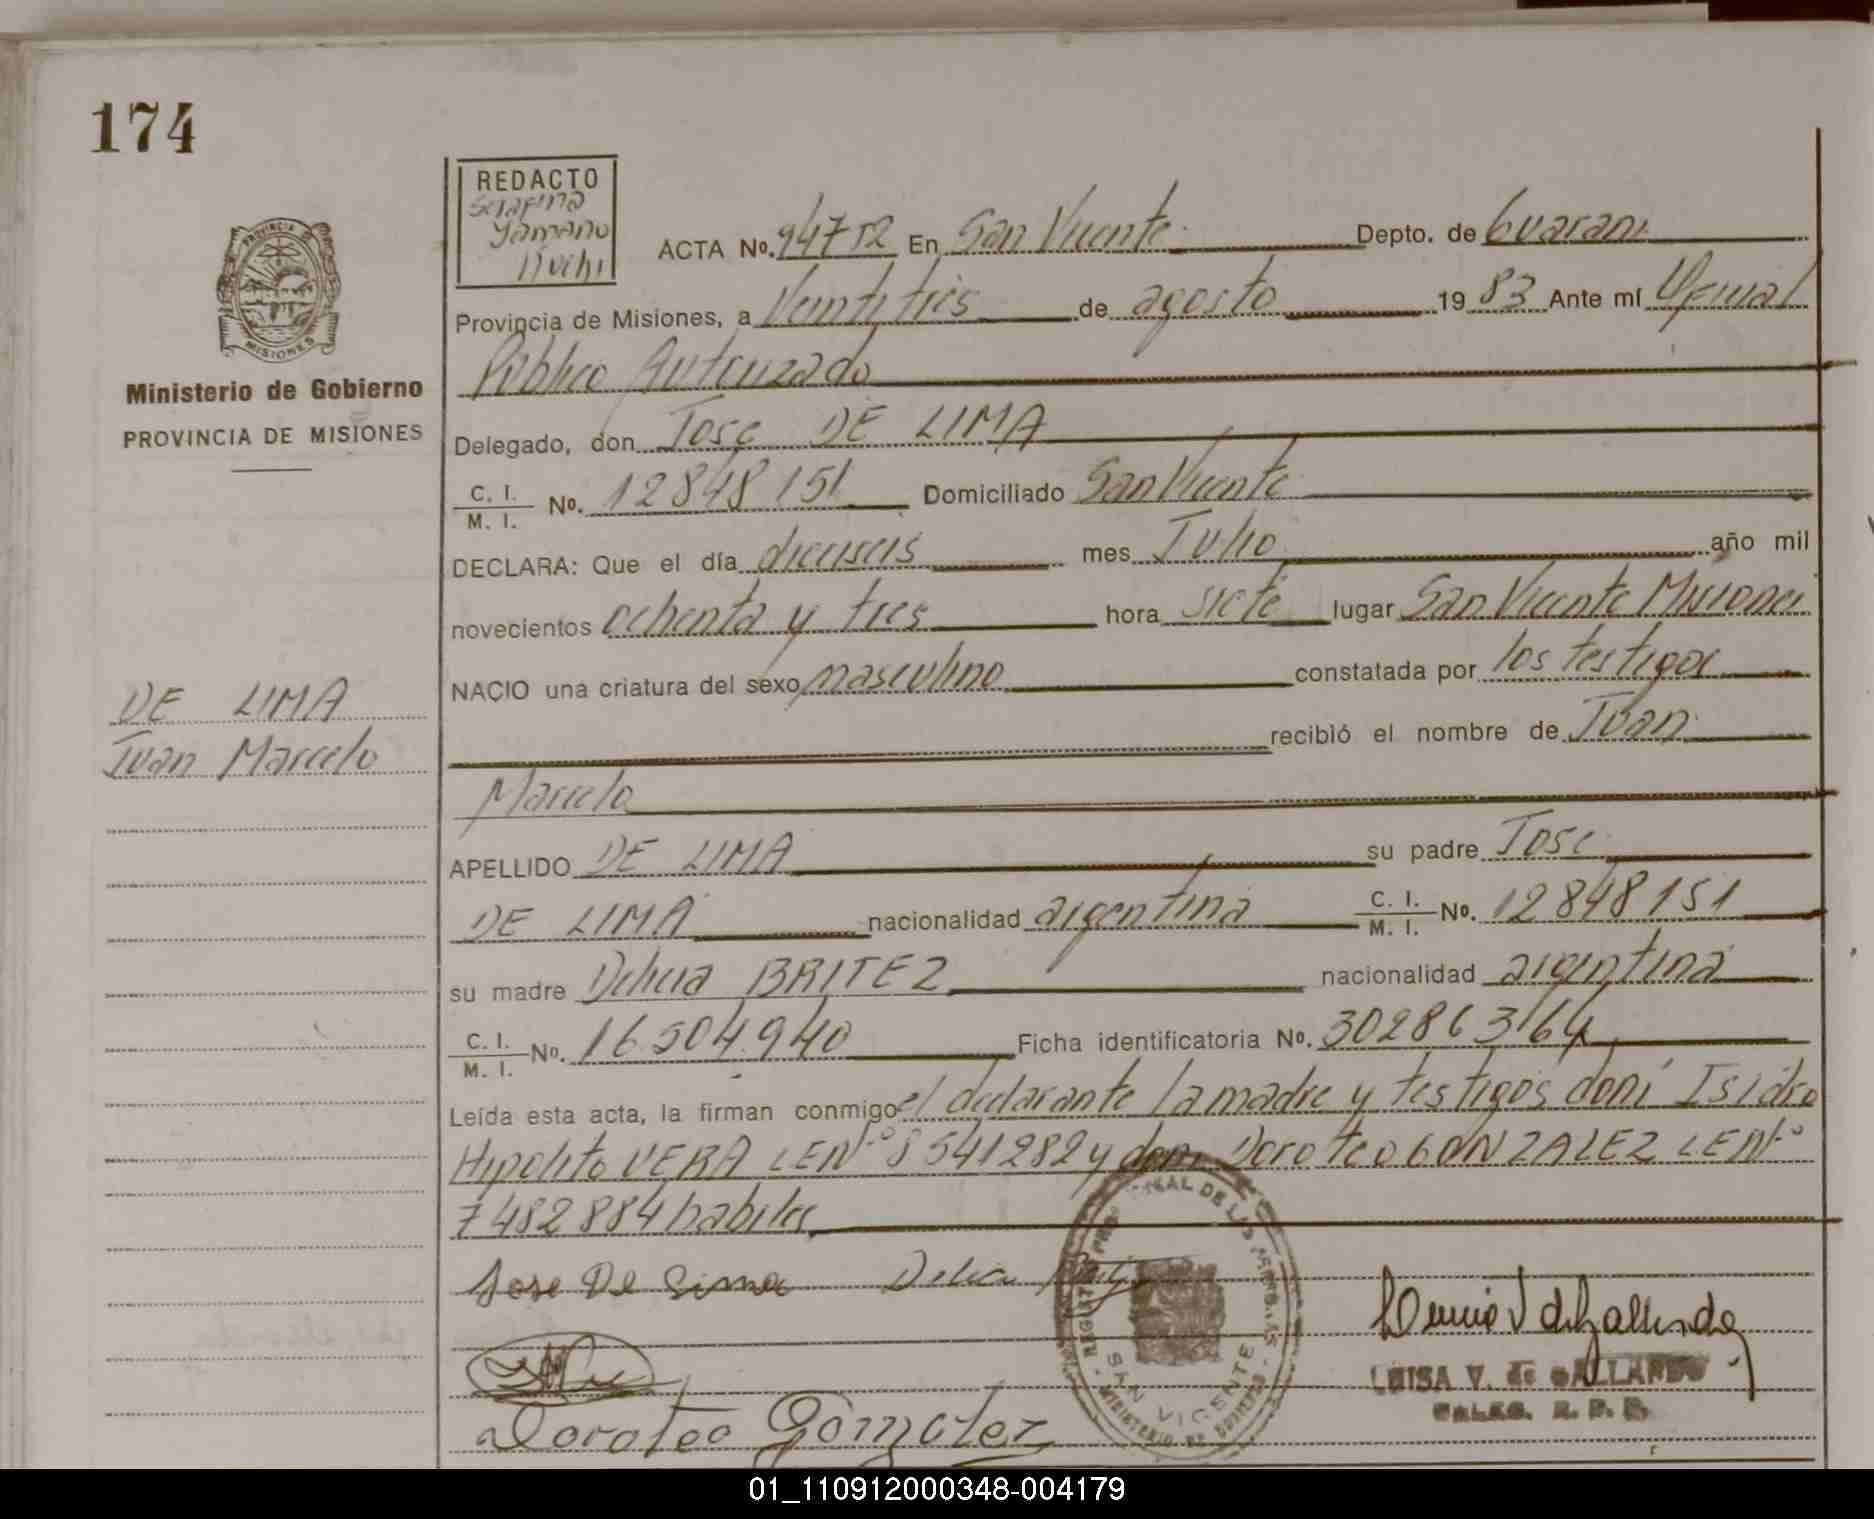 174
REDACTO
Serafina
ACTA No. 94752 En San Vicente Depto. de Guarani
Provincia de Misiones, a Veintitres de agosto 1983 Ante mí Oficial
Público Autorizado
Delegado, don Jose DE LIMA
C. I. / M. I. No. 12848151 Domiciliado San Vicente
DECLARA: Que el día dieciseis mes Julio año mil
novecientos ochenta y tres hora siete lugar San Vicente Misiones
NACIO una criatura del sexo masculino constatada por los testigos
recibió el nombre de Juan
Marcelo
APELLIDO DE LIMA su padre Jose
DE LIMA nacionalidad argentina C. I. / M. I. No. 12848151
su madre Delicia BRITEZ nacionalidad argentina
C. I. / M. I. No. 16504940 Ficha identificatoria No. 30286364
Leída esta acta, la firman conmigo el declarante la madre y testigos don: Isidro
Hipolito VERA LE Nº 8541282 y don: Doroteo GONZALEZ LE Nº
7482884 habiles
Jose De Lima Delicia
Doroteo Gonzalez
PROVINCIA DE
MISIONES
Ministerio de Gobierno
PROVINCIA DE MISIONES
DE LIMA
Juan Marcelo
DE LAS PERSONAS
SAN VICENTE
MINISTERIO DE GOBIERNO
LUISA V. de GALLARDO
01_110912000348-004179